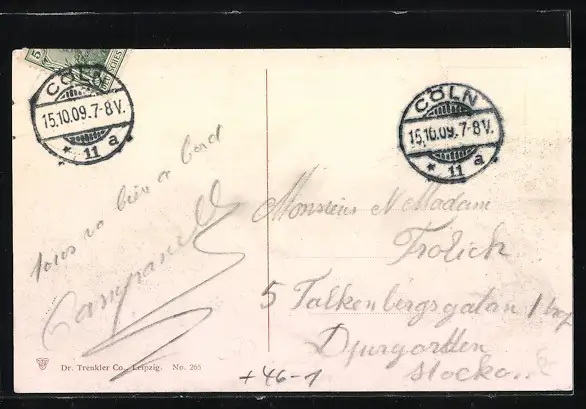 5
CÖLN
15.10.09.7-8V.
* 11 a *
CÖLN
15.10.09.7-8V.
* 11 a *
tous va bien a bord
Campanell
Monsieur & Madam
Frölich
5 Falkenbergsgatan 1 trp
Djurgården
Stock
Dr. Trenkler Co., Leipzig. No. 265
+46-1